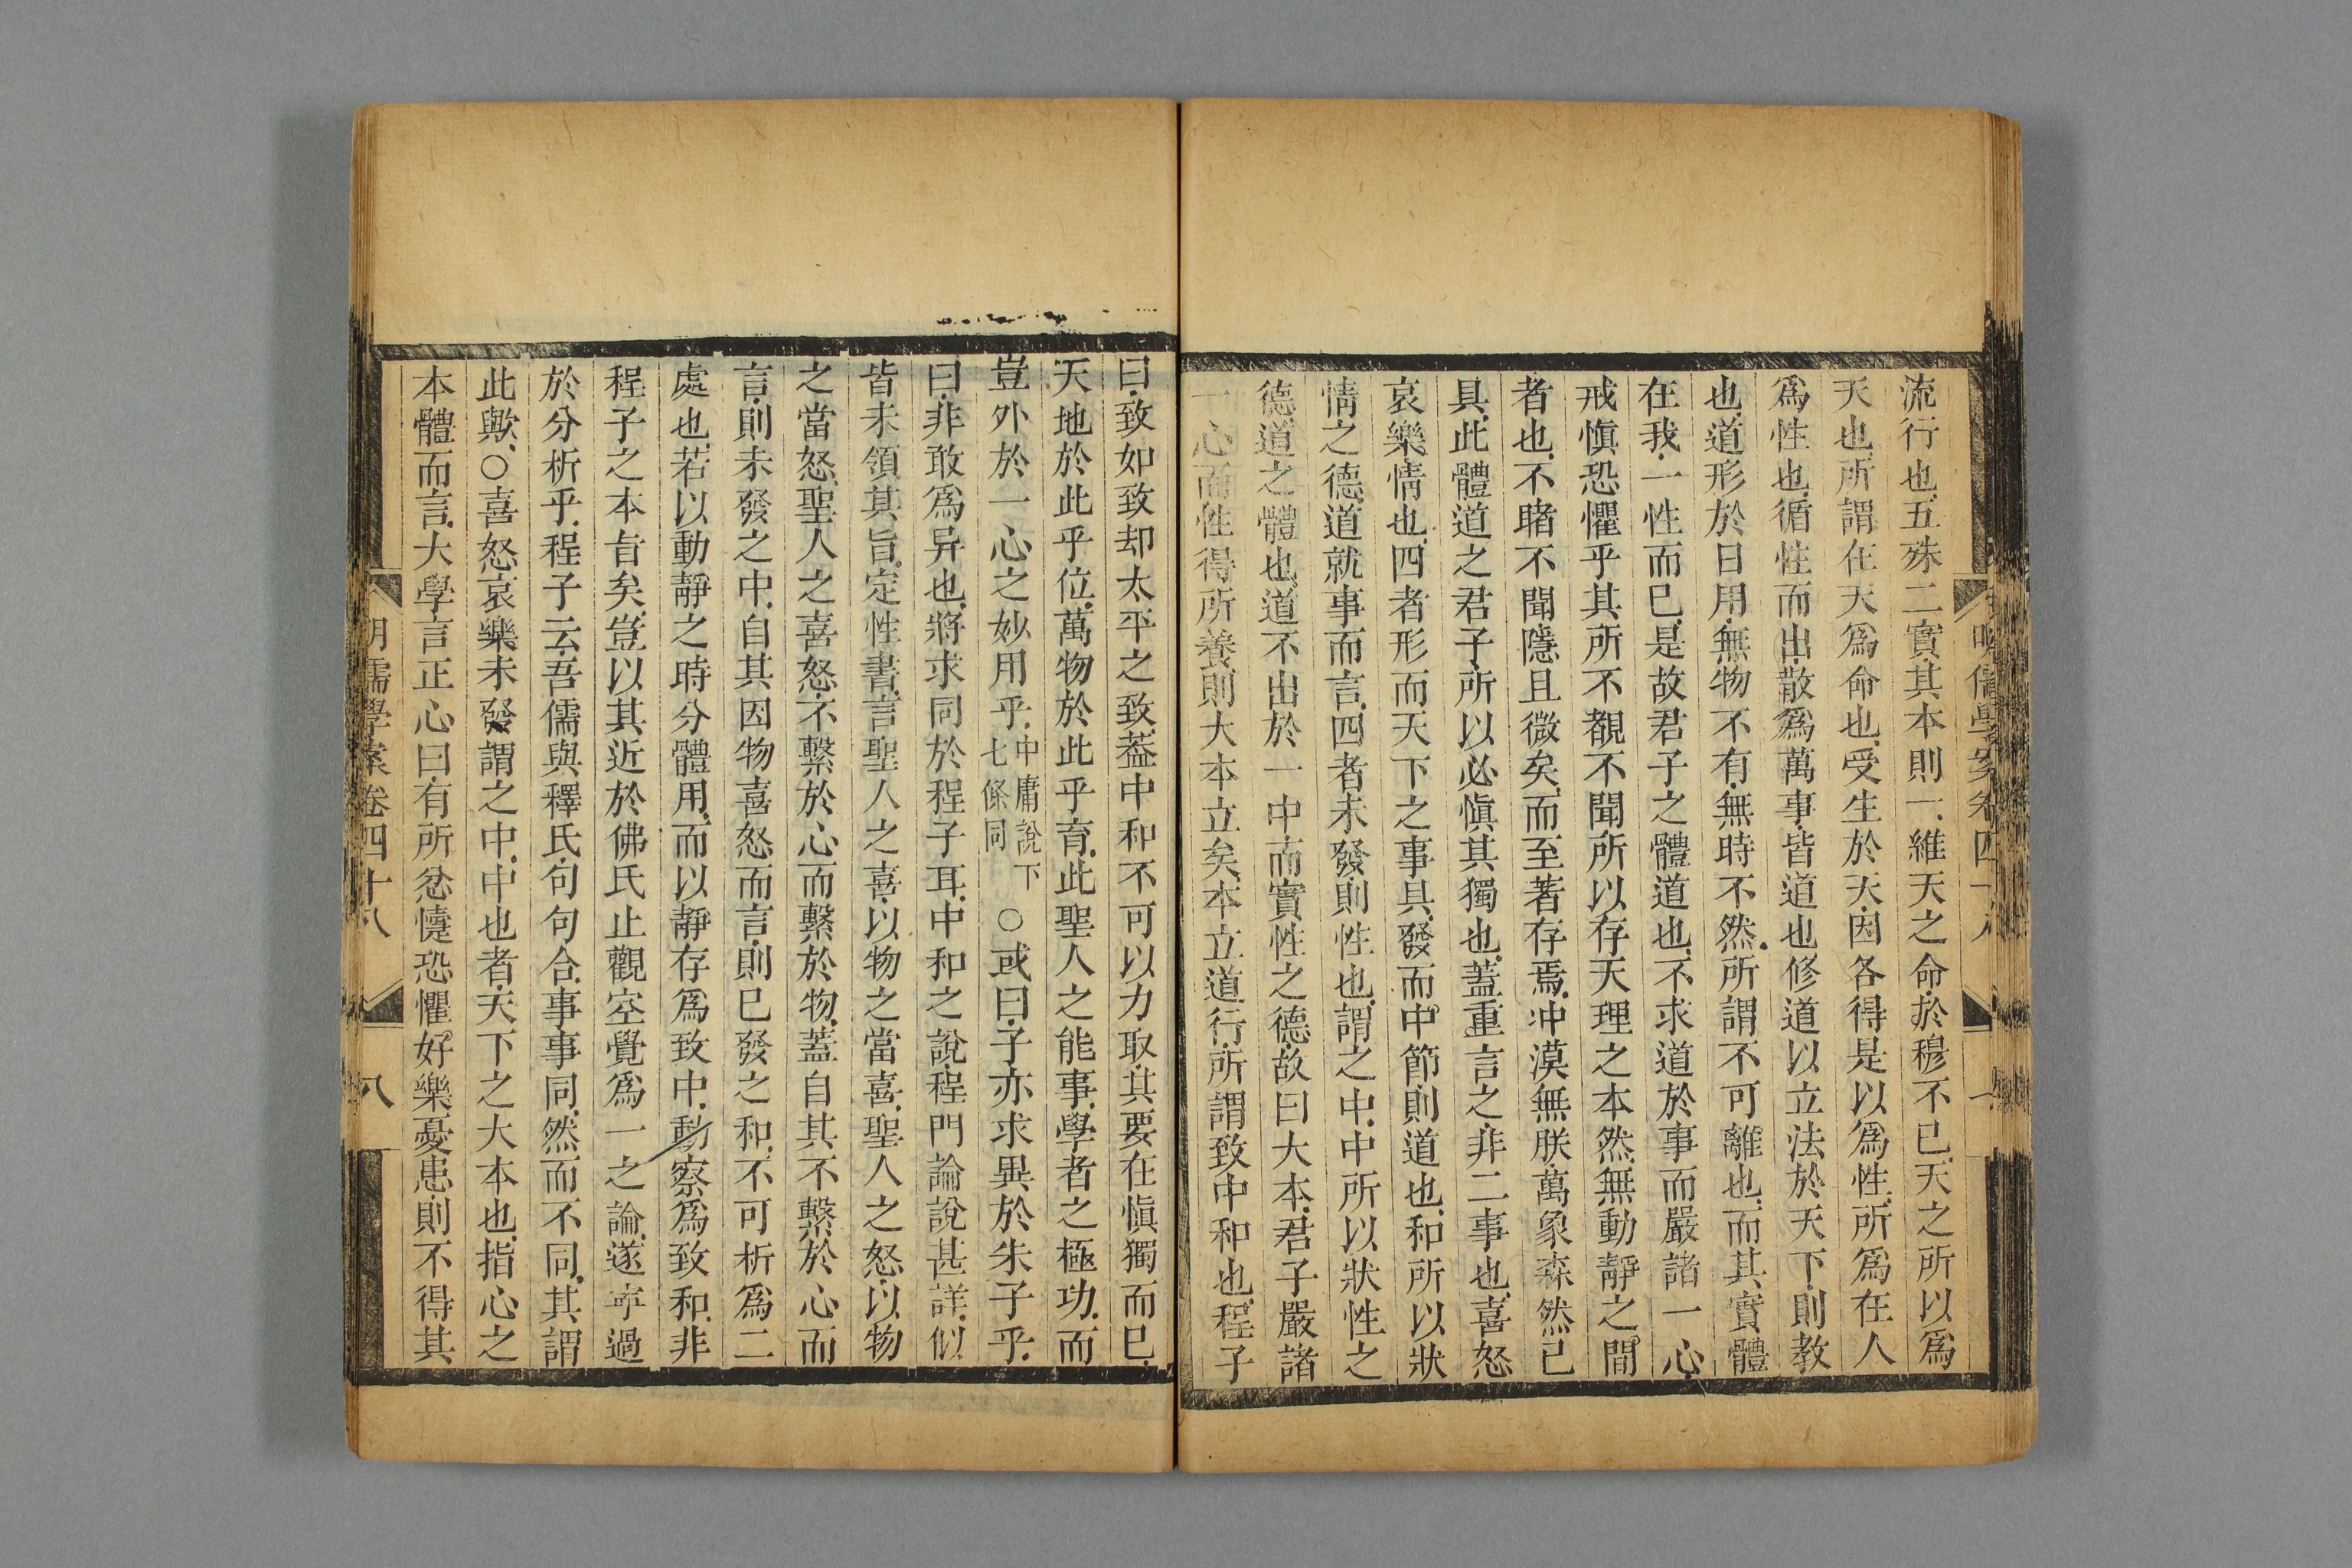 流行也五殊二實其本則一維天之命於穆不已天之所以爲
天也所謂在天爲命也受生於天因各得是以爲性所爲在人
爲性也循性而出散爲萬事皆道也修道以立法於天下則教
也道形於日用無物不有無時不然所謂不可離也而其實體
在我一性而已是故君子之體道也不求道於事而嚴諸一心
戒愼恐懼乎其所不覩不聞所以存天理之本然無動靜之間
者也不睹不聞隱且微矣而至著存焉冲漠無朕萬象森然已
具此體道之君子所以必愼其獨也蓋重言之非二事也喜怒
哀樂情也四者形而天下之事具發而中節則道也和所以狀
情之德道就事而言四者未發則性也謂之中中所以狀性之
德道之體也道不出於一中而實性之德故曰大本君子嚴諸
一心而性得所養則大本立矣本立道行所謂致中和也程子
曰致如致却太平之致葢中和不可以力取其要在愼獨而已
天地於此乎位萬物於此乎育此聖人之能事學者之極功而
豈外於一心之妙用乎中庸說下七條同○或曰子亦求異於朱子乎
曰非敢爲异也將求同於程子耳中和之說程門論說甚詳似
皆未領其旨定性書言聖人之喜以物之當喜聖人之怒以物
之當怒聖人之喜怒不繫於心而繫於物蓋自其不繫於心而
言則未發之中自其因物喜怒而言則已發之和不可析爲二
處也若以動靜之時分體用而以靜存爲致中動察爲致和非
程子之本旨矣豈以其近於佛氏止觀空覺爲一之論遂寧過
於分析乎程子云吾儒與釋氏句句合事事同然而不同其謂
此歟○喜怒哀樂未發謂之中中也者天下之大本也指心之
本體而言大學言正心曰有所忿懥恐懼好樂憂患則不得其
明儒學案卷四十八 八